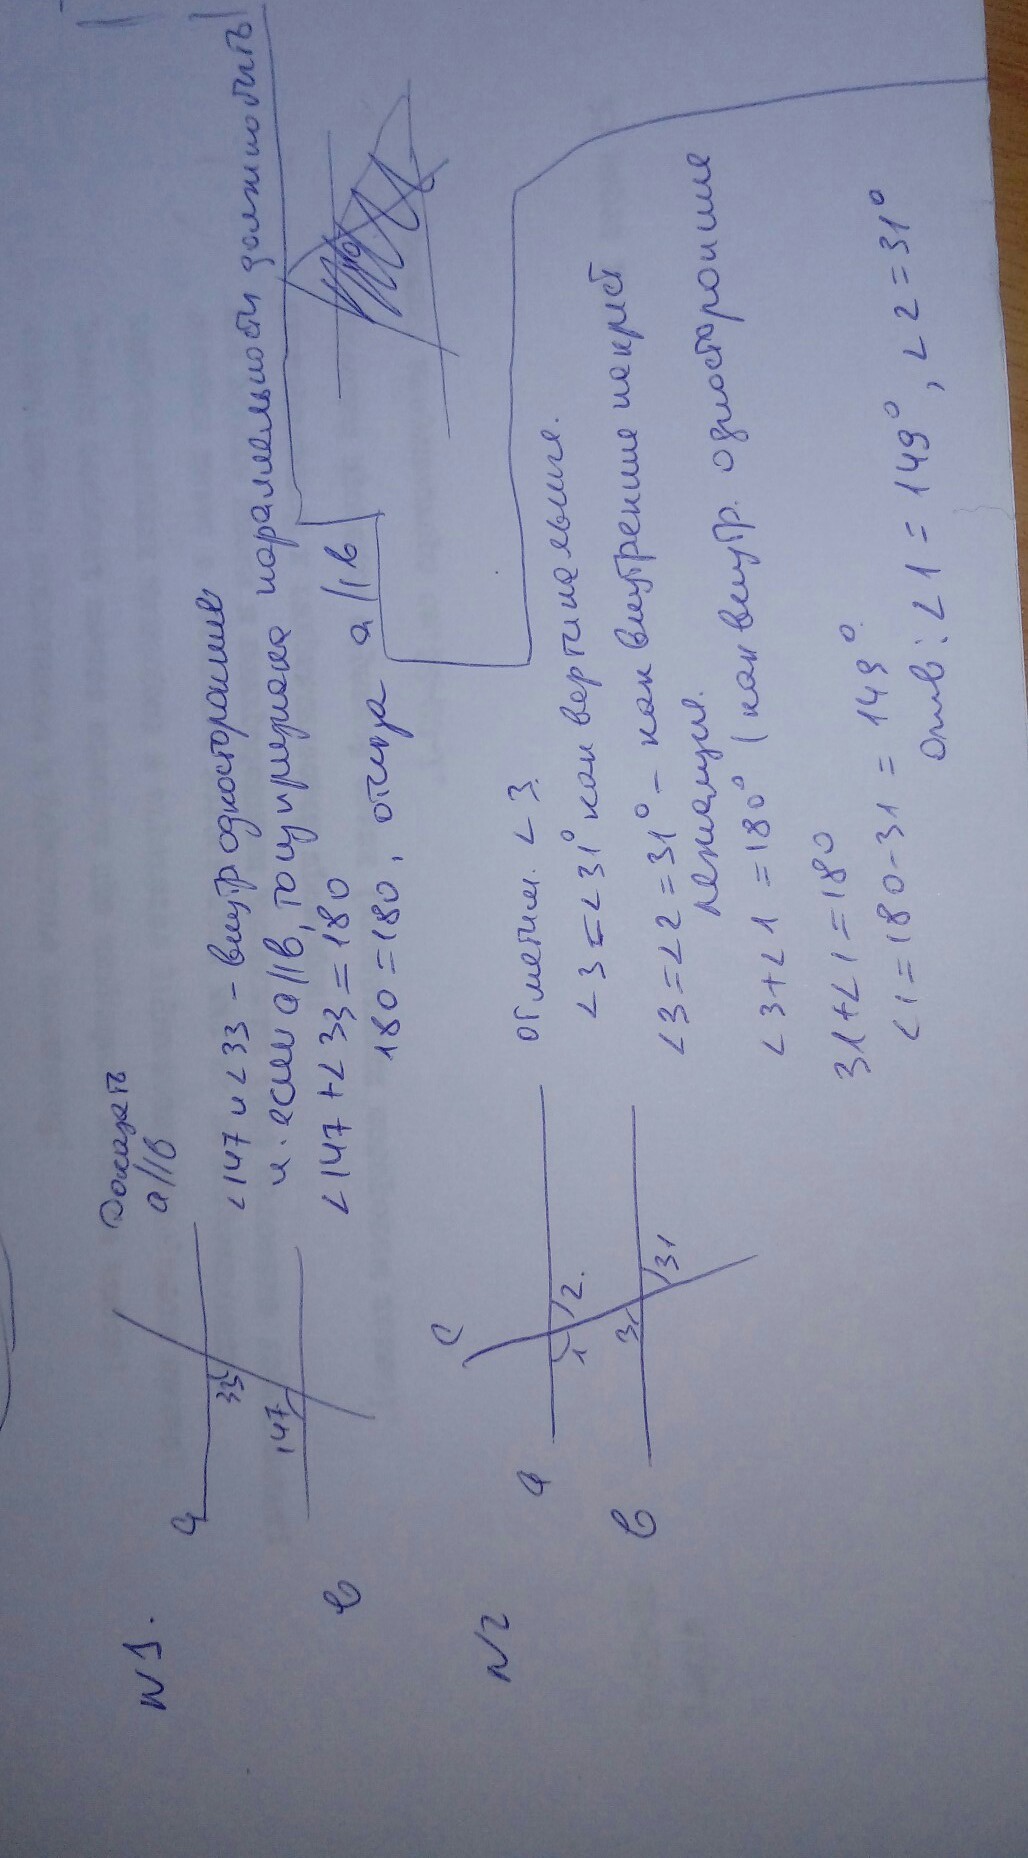 N1.
Доказать
a||b
a
33
147
b
<147 и <33 – внутр односторонние
и. если a||b, то признака паралельности должно быть
<147 + <33 = 180
180 = 180, отсюда a||b
N2
a
b
c
1
2.
3
31
отметим. <3.
<3 = <31° как вертикальные.
<3 = <2 = 31° – как внутренние накрест
лежащие.
<3 + <1 = 180° (как внутр. односторонние
31 + <1 = 180
<1 = 180 – 31 = 149°.
Ответ: <1 = 149°, <2 = 31°